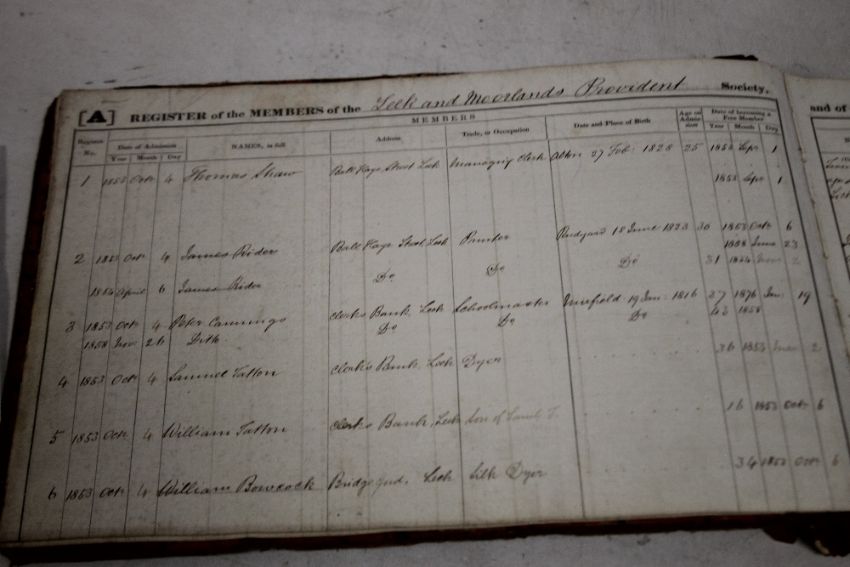 [A] REGISTER of the MEMBERS of the Leek and Moorlands Provident Society,
and of
MEMBERS
Register No. Date of Admission NAMES, in full Address Trade, or Occupation Date and Place of Birth Age at Admission Date of becoming a Free Member
Year Month Day Year Month Day
1 1853 Octr 4 Thomas Shaw Ball Haye Street Leek Managing Clerk 27 Feb: 1828 25 1853 Sepr 1
1858 Sepr 1
2 1853 Octr 4 James Rider Ball Haye Street Leek Painter Rudyard 18 June 1823 30 1853 Octr 6
1858 23
1854 April 6 James Rider Do Do Do 31 1854 2
3 1853 Octr 4 Peter Cannings Clerks Bank Leek Schoolmaster 19 Jan: 1816 37 1876 Jan: 19
1858 26 Ditto Do Do Do 42 1858
4 1853 Octr 4 Samuel Tatton Clerks Bank Leek Dyer 36 1853 2
5 1853 Octr 4 William Tatton Clerks Bank, Leek Son of Saml T. 16 1853 Octr 6
6 1853 Octr 4 William Bowcock Bridge End, Leek Silk Dyer 34 1853 Octr 6